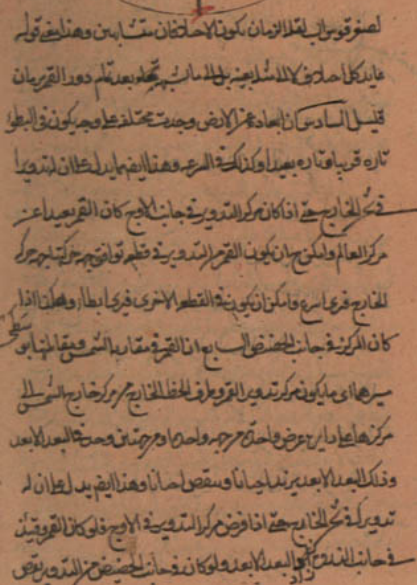 لصغر قوس اب لقلة الزمان يكون الاختلافان متشابهين وهذا معنى قوله
عايد كل اختلاف الى مثله بعينه بل الى ما يشابهه بعد تمام دور القمر بزمان
قليل السادس كان ابعاده عن الارض وجدت مختلفة على وجه يكون في البطؤ
تارة قريبا وتارة بعيدا وكذلك في السرعة وهذا ايضا يدل على ان له تدويرا
في ثخن الخارج حتى اذا كان مركز التدوير في جانب الاوج كان القمر بعيدا عن
مركز العالم وامكن ح ان يكون القمر من التدوير في قطعة توافق جهة حركتها جهة حركة
الخارج فيرى اسرع وامكن ان يكون في القطعة الاخرى فيرى ابطأ وهكذا اذا
كان المركز في جانب الحضيض السابع ان القمر في مقارنة الشمس ومقابلتها بو
سيرهما اى ما يكون مركز تدوير القمر وطرف الخط الخارج من مركز خارج الشمس الى
مركزها على دايرة عرض واحدة مرة واحدة ومرتين وجد في البعد الابعد
وذلك البعد الابعد يزيد احيانا وينقص احيانا وهذا ايضا يدل على ان له
تدويرا في ثخن الخارج حتى اذا فرض مركز التدوير في الاوج فلو كان القمر حينئذ
في جانب الذروة البعد الابعد ولو كان في جانب الحضيض من التدوير نقص